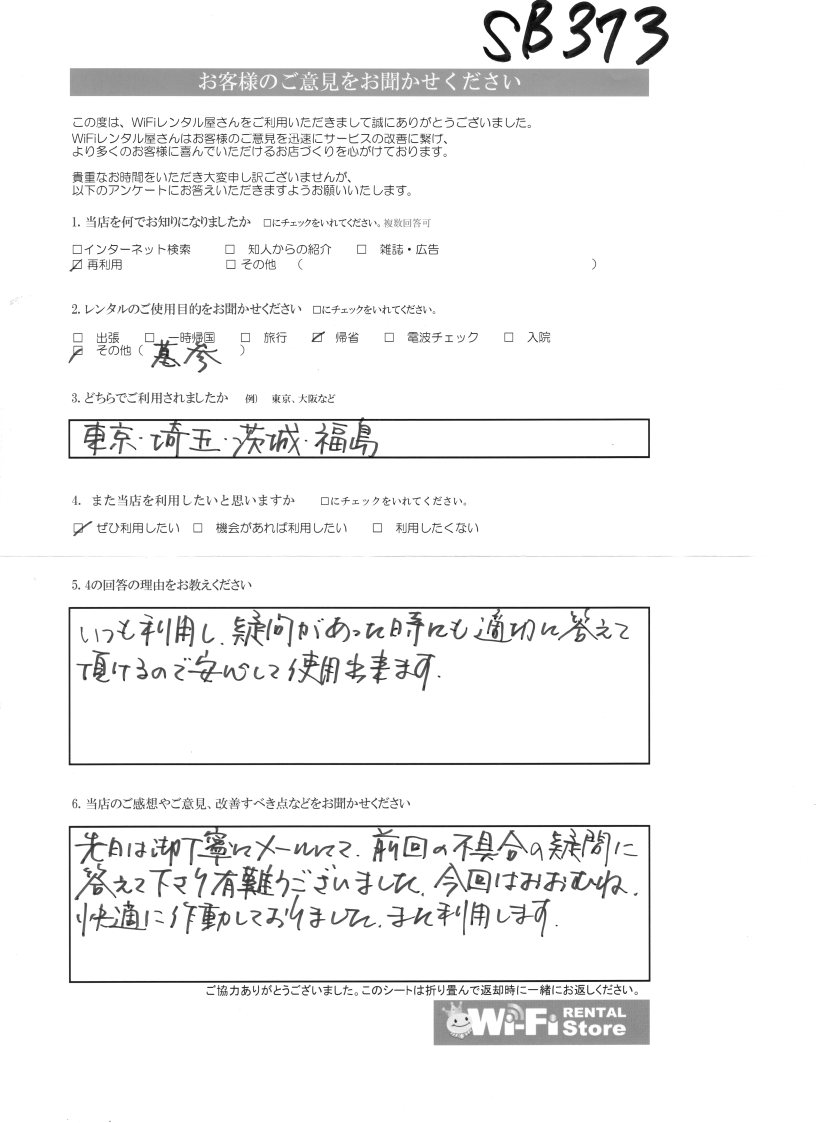 SB373
お客様のご意見をお聞かせください
この度は、WiFiレンタル屋さんをご利用いただきまして誠にありがとうございました。
WiFiレンタル屋さんはお客様のご意見を迅速にサービスの改善に繋げ、
より多くのお客様に喜んでいただけるお店づくりを心がけております。
貴重なお時間をいただき大変申し訳ございませんが、
以下のアンケートにお答えいただきますようお願いいたします。
1. 当店を何でお知りになりましたか □にチェックをいれてください。複数回答可
□インターネット検索 □ 知人からの紹介 □ 雑誌・広告
☑ 再利用 □ その他 ( )
2. レンタルのご使用目的をお聞かせください □にチェックをいれてください。
□ 出張 □ 一時帰国 □ 旅行 ☑ 帰省 □ 電波チェック □ 入院
☑ その他 ( 墓参 )
3. どちらでご利用されましたか 例) 東京、大阪など
東京・埼玉・茨城・福島
4. また当店を利用したいと思いますか □にチェックをいれてください。
☑ ぜひ利用したい □ 機会があれば利用したい □ 利用したくない
5. 4の回答の理由をお教えください
いつも利用し、疑問があった時にも適切に答えて
頂けるので安心して使用出来ます.
6. 当店のご感想やご意見、改善すべき点などをお聞かせください
先日は御丁寧にメールにて、前回の不具合の疑問に
答えて下さり有難うございました、今回はおおむね、
快適に作動しておりました、また利用します.
ご協力ありがとうございました。このシートは折り畳んで返却時に一緒にお返しください。
Wi-Fi RENTAL Store